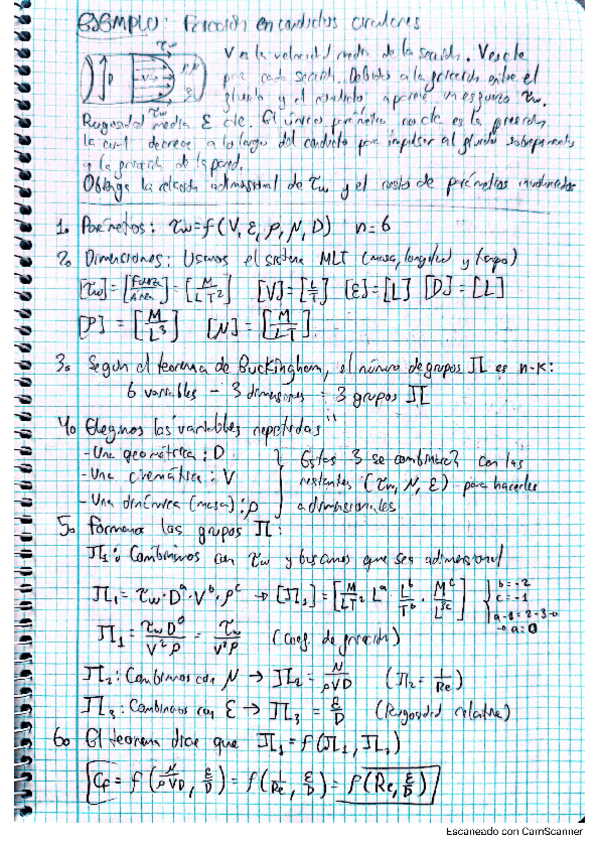 EJEMPLO: Fricción en conductos circulares
V es la velocidad media de la sección. V es cte
por cada sección. Debido a la fricción entre el
fluido y el conducto aparece un esfuerzo τw.
Rugosidad media ε cte. El único parámetro no cte es la presión
la cual decrece a lo largo del conducto para impulsar al fluido
y la fricción de la pared.
Obtenga la relación adimensional de τw y el resto de parámetros involucrados
1. Parámetros: τw = f(V, ε, ρ, μ, D) n=6
2. Dimensiones: Usamos el sistema MLT (masa, longitud y tiempo)
[τw] = [Fuerza/Área] = [M/LT²] [V] = [L/T] [ε] = [L] [D] = [L]
[ρ] = [M/L³] [μ] = [M/LT]
3. Segun el teorema de Buckingham, el número de grupos Π es n-k:
6 variables - 3 dimensiones = 3 grupos Π
4. Elegimos las variables "repetidas"
- Una geométrica: D
- Una cinemática: V
- Una dinámica (masa): ρ
Estas 3 se combinan con las
restantes (τw, μ, ε) para hacerles
adimensionales
5. Formamos los grupos Π:
Π1: Combinamos con τw y buscamos que sea adimensional
Π1 = τw · D^a · V^b · ρ^c → [Π1] = [M/LT² L^a · L^b/T^b · M^c/L^3c]
b = -2
c = -1
→ a = 0
Π1 = τw D⁰/V²ρ = τw/V²ρ (Coef. de fricción)
Π2: Combinamos con μ → Π2 = μ/ρVD (Π2 = 1/Re)
Π3: Combinamos con ε → Π3 = ε/D (Rugosidad relativa)
6. El teorema dice que Π1 = f(Π2, Π3)
Cf = f(μ/ρVD, ε/D) = f(1/Re, ε/D) = f(Re, ε/D)
Escaneado con CamScanner